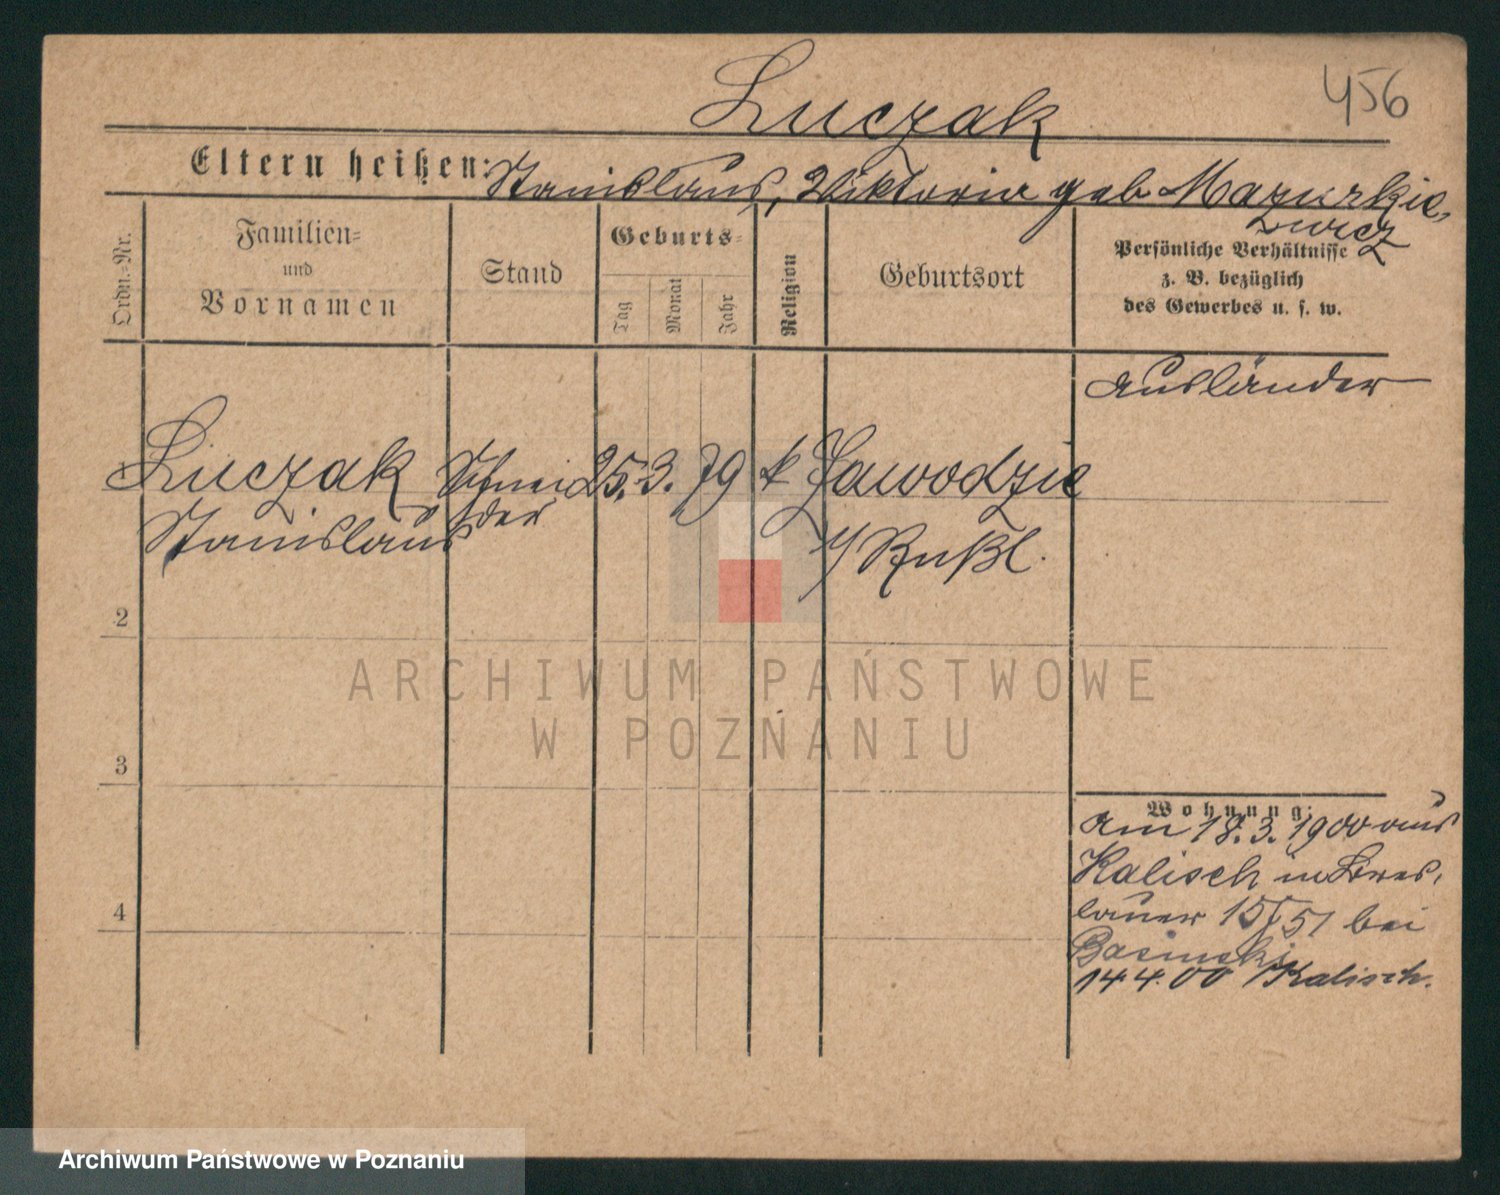 456
Luczak
Eltern heißen: Stanislaus, Viktoria geb Mazurkie-
wicz
Ordn.-Nr.
Familien-
und
Vornamen
Stand
Geburts-
Tag
Monat
Jahr
Religion
Geburtsort
Persönliche Verhältnisse
z. B. bezüglich
des Gewerbes u. s. w.
Ausländer
Luczak Schnei 25. 3. 79 k Zawodzie
Stanislaus der
/Rußl.
2
3
4
Wohnung:
Am 18.3.1900 aus
Kalisch in Bres-
lauer 15/51 bei
Basinski
14 4.00 Kalisch.
ARCHIWUM PAŃSTWOWE
W POZNANIU
Archiwum Państwowe w Poznaniu